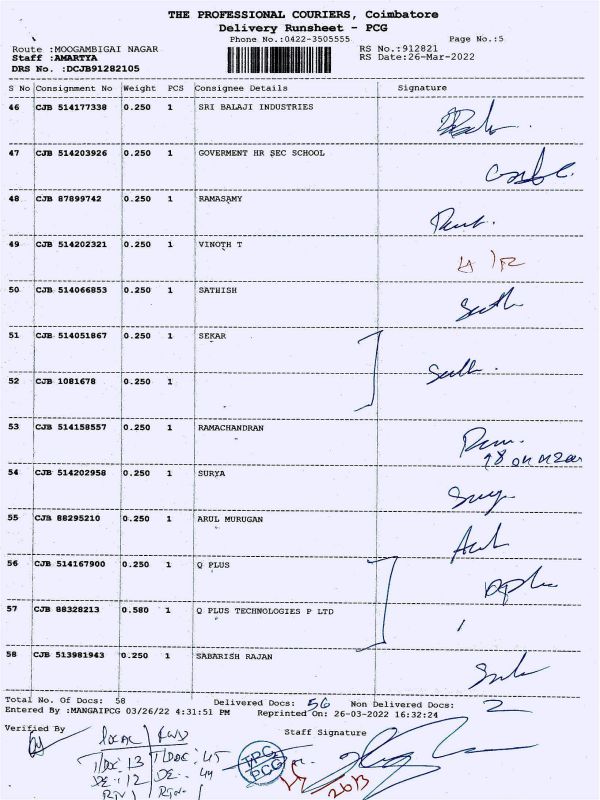 THE PROFESSIONAL COURIERS, Coimbatore
Delivery Runsheet - PCG
Phone No.:0422-3505555 Page No.:5
Route :MOOGAMBIGAI NAGAR RS No.:912821
Staff :AMARTYA RS Date:26-Mar-2022
DRS No. :DCJB91282105
S No Consignment No Weight PCS Consignee Details Signature
46 CJB 514177338 0.250 1 SRI BALAJI INDUSTRIES
47 CJB 514203926 0.250 1 GOVERMENT HR SEC SCHOOL
48 CJB 87899742 0.250 1 RAMASAMY
49 CJB 514202321 0.250 1 VINOTH T
50 CJB 514066853 0.250 1 SATHISH
51 CJB 514051867 0.250 1 SEKAR
52 CJB 1081678 0.250 1
53 CJB 514158557 0.250 1 RAMACHANDRAN
54 CJB 514202958 0.250 1 SURYA
55 CJB 88295210 0.250 1 ARUL MURUGAN
56 CJB 514167900 0.250 1 Q PLUS
57 CJB 88328213 0.580 1 Q PLUS TECHNOLOGIES P LTD
58 CJB 513981943 0.250 1 SABARISH RAJAN
Total No. Of Docs: 58 Delivered Docs: 56 Non Delivered Docs: 2
Entered By :MANGAIPCG 03/26/22 4:31:51 PM Reprinted On: 26-03-2022 16:32:24
Verified By Staff Signature
T/DOC: 13 T/DOC: 45
DE: 12 DE: 44
TPC
PCG
26/3